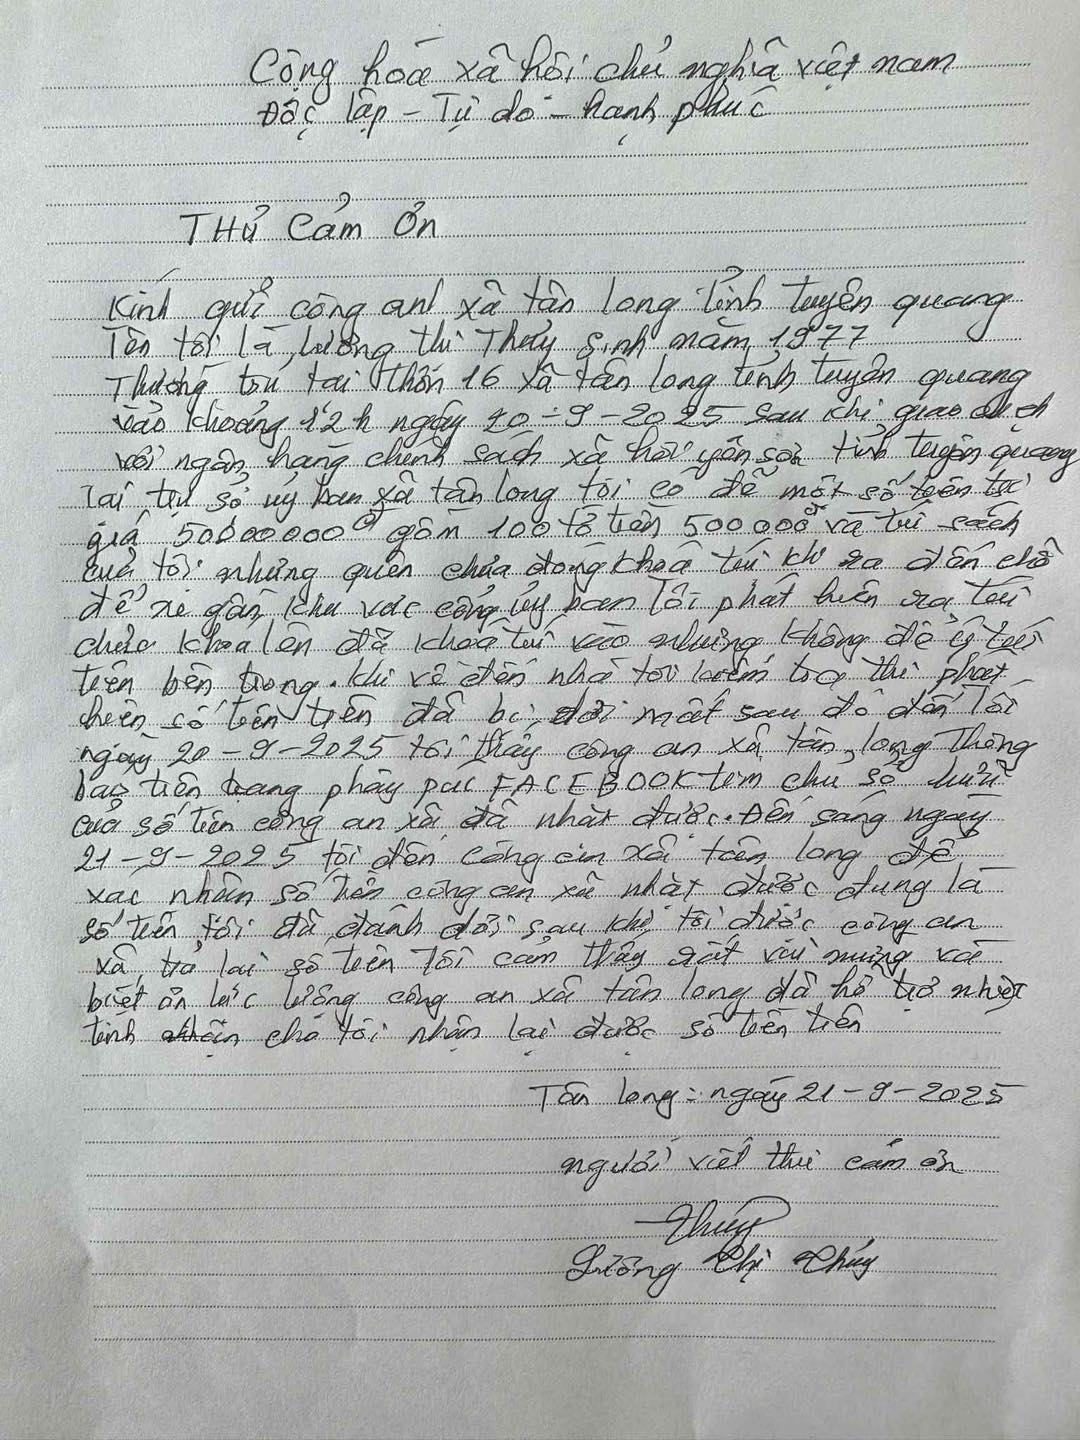 Cộng hoá xã hôi chủ nghĩa việt nam
Độc lập - Tự do - hạnh phúc
THƯ CẢM ƠN
Kính gửi công anh xã tân long tỉnh tuyên quang
Tên tôi là lương thi Thúy sinh năm 1977
Thường trú tai thôn 16 xã tân long tỉnh tuyên quang
vào khoảng 12h ngày 20-9-2025 sau khi giao dich
với ngân hàng chính sách xã hôi yên sơn tỉnh tuyên quang
Tai trụ sở uỷ ban xã tân long tôi co để một số tiền trị
giá 50000000đ gồm 100 tờ tiền 500000đ và túi sách
của tôi nhưng quên chưa đong khoá túi khi ra đến chỗ
để xe gần khu vưc cổng ủy ban Tôi phát hiên ra túi
chưa khoa lên đã khoá túi vào nhưng không để ý túi
tiền bên trong. khi về đến nhà tôi kiểm tra thì phat
hiên số tiền trên đã bị rơi mất sau đó đến Tối
ngày 20-9-2025 tôi thấy công an xã tân long thông
bao trên trang phây púc FACEBOOK tìm chu sở hữu
của số tiền công an xã đã nhặt được. Đến sáng ngày
21-9-2025 tôi đến công an xã tân long để
xac nhân số tiền công an xã nhặt được đung là
số tiền tôi đã đánh rơi sau khi tôi được công an
xã trả lai số tiền Tôi cảm thấy rất vui mừng và
biết ơn lưc lương công an xã tân long đã hỗ trợ nhiệt
tình cho tôi nhận lại được số tiền trên
Tân long: ngày 21-9-2025
người viết thư cảm ơn
Thúy
Lương Thị Thúy